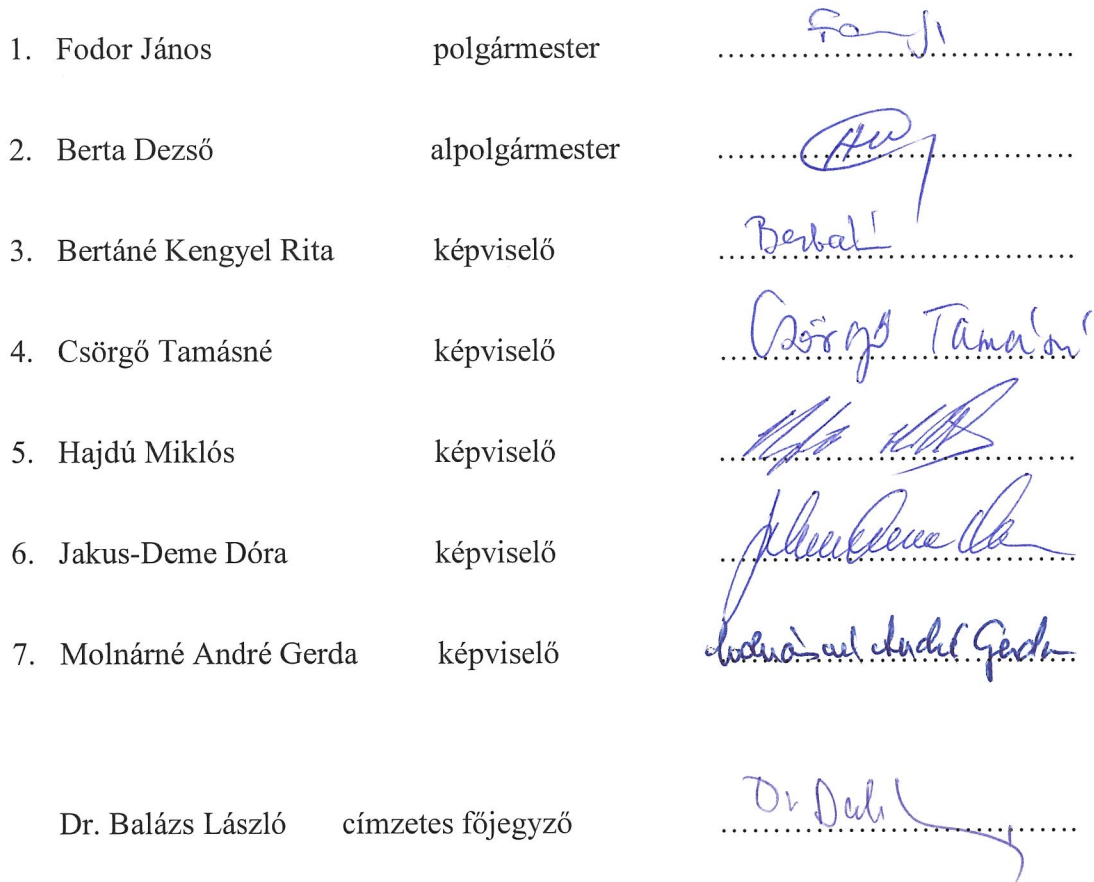 1. Fodor János polgármester ..........
2. Berta Dezső alpolgármester ..........
3. Bertáné Kengyel Rita képviselő ..........
4. Csörgő Tamásné képviselő .......... Csörgő Tamásné
5. Hajdú Miklós képviselő ..........
6. Jakus-Deme Dóra képviselő ..........
7. Molnárné André Gerda képviselő .......... Molnárné André Gerda
Dr. Balázs László címzetes főjegyző .......... Dr